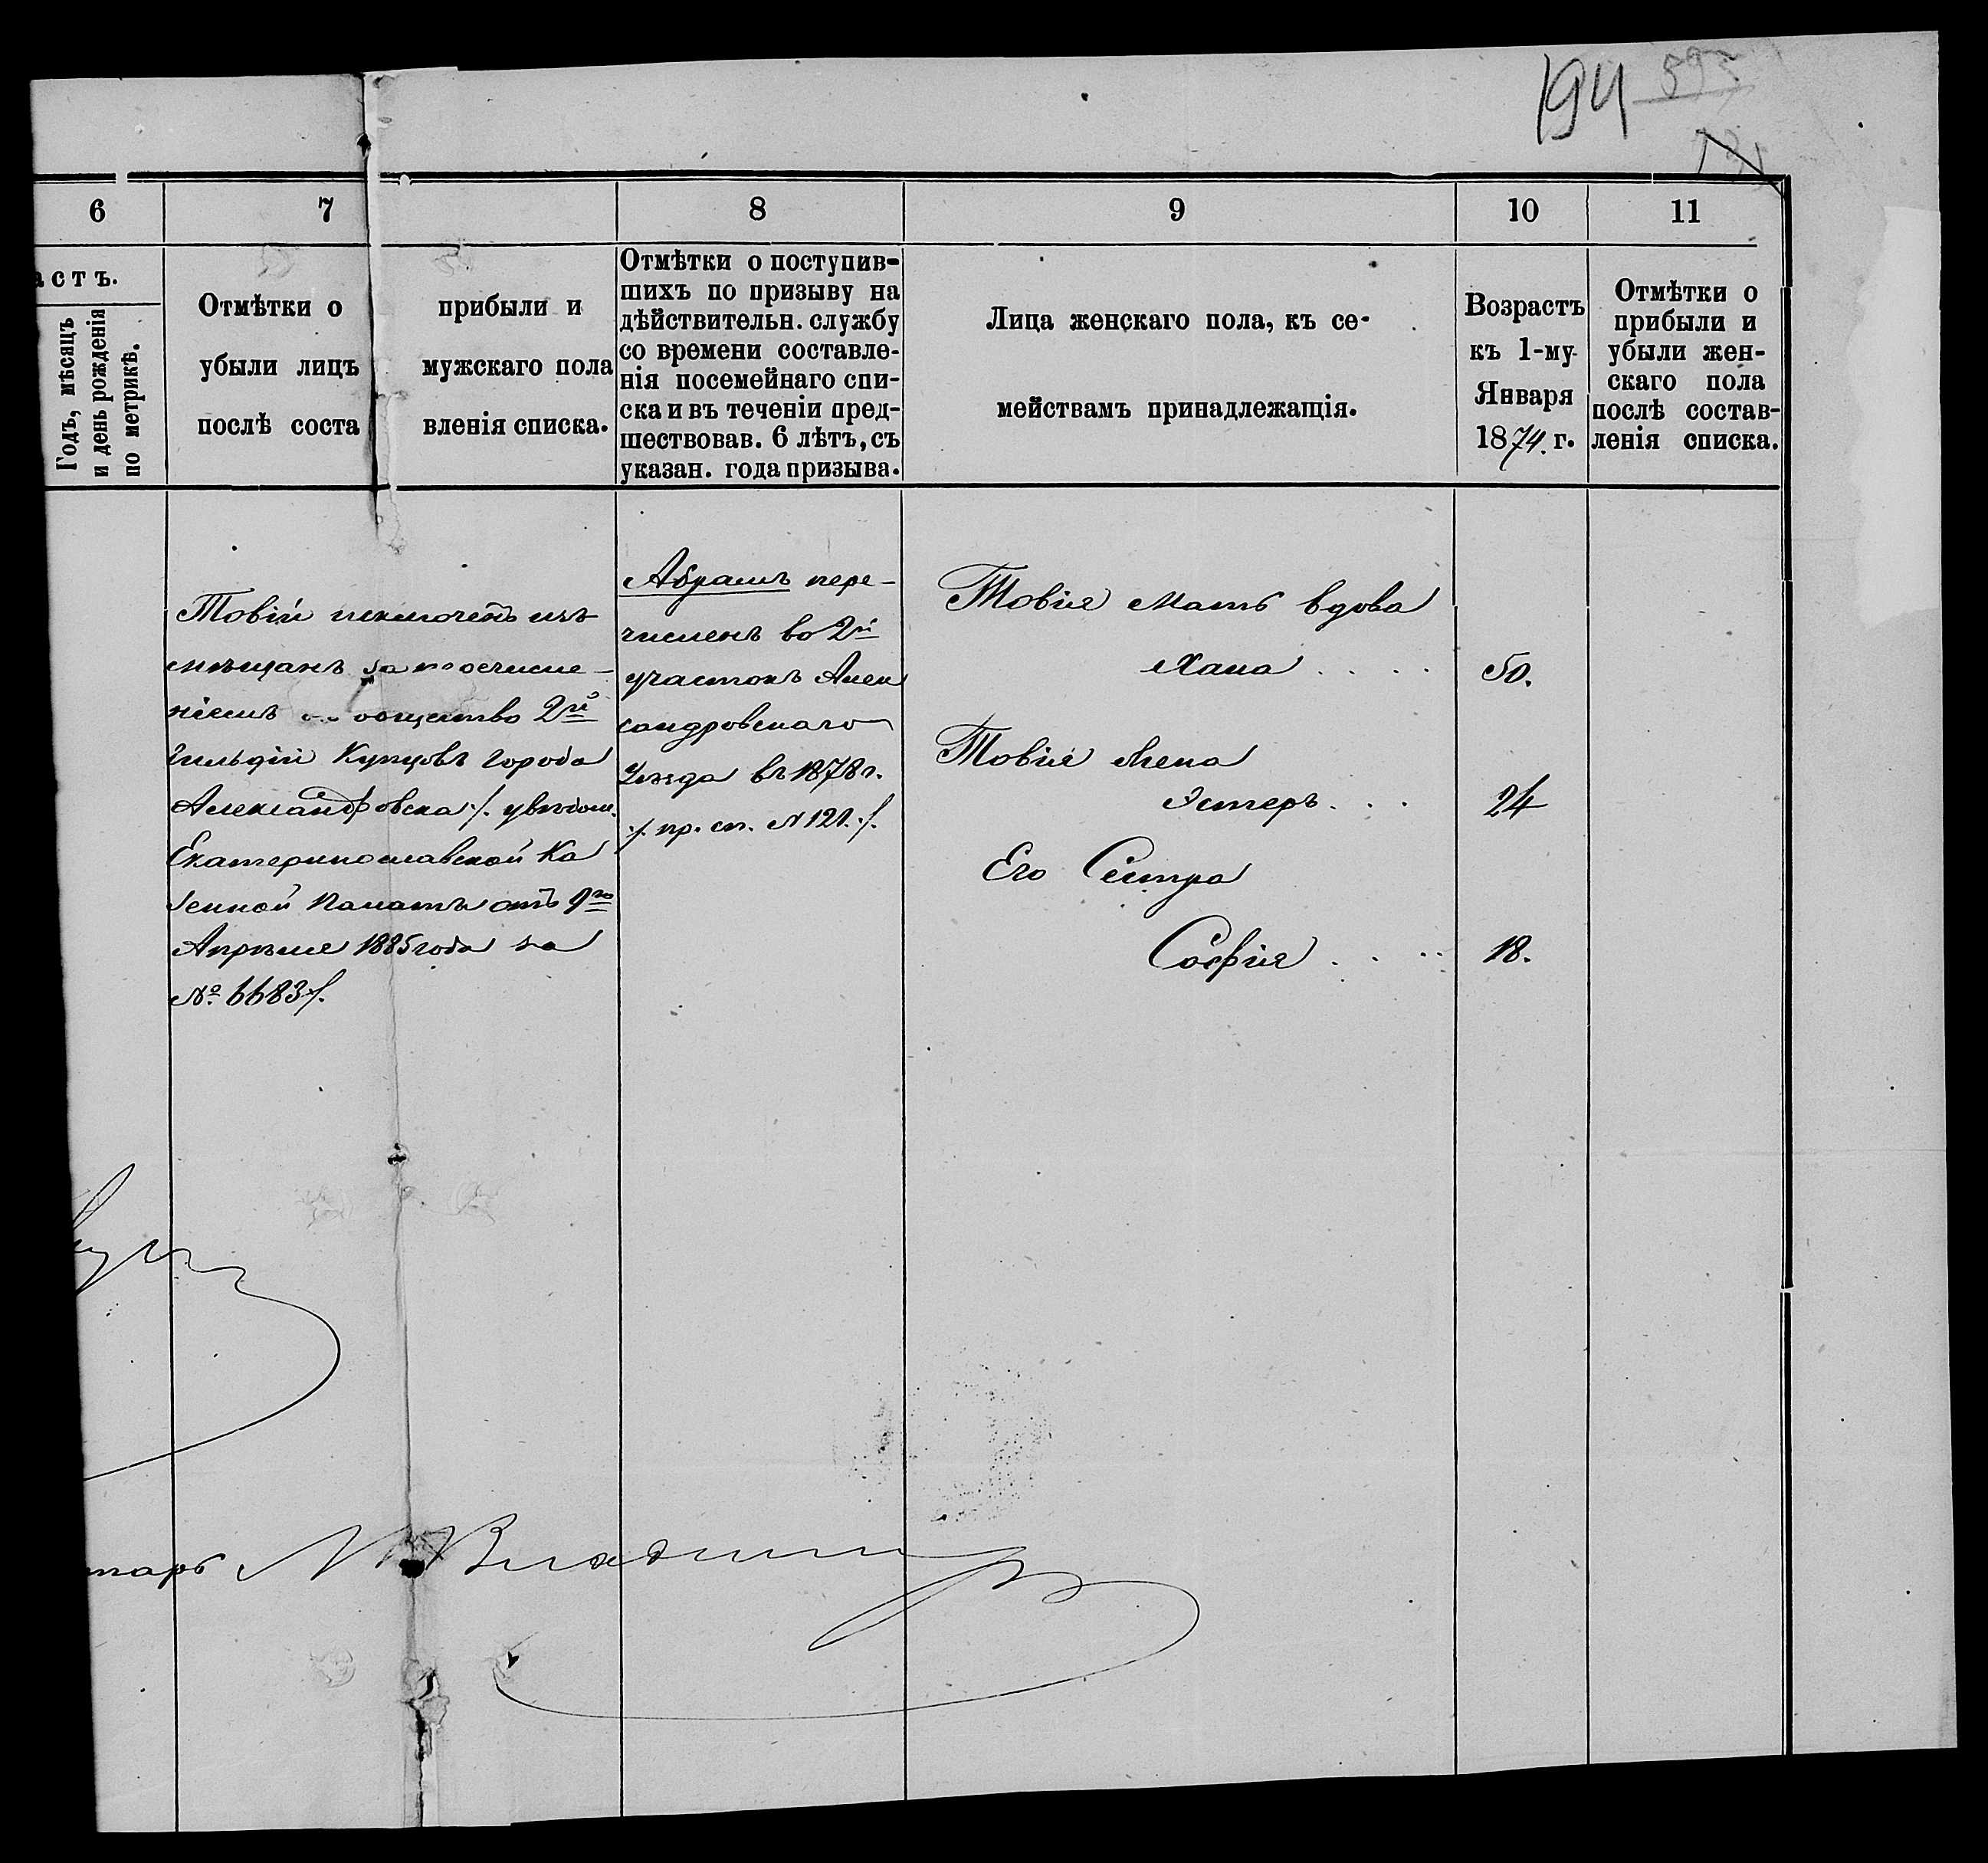 194 593
6
7
8
9
10
11
астъ.
Годъ, мѣсяцъ
и день рожденія
по метрикѣ.
Отмѣтки о прибыли и
убыли лицъ мужскаго пола
послѣ соста вленія списка.
Отмѣтки о поступив-
шихъ по призыву на
дѣйствительн. службу
со времени составле-
нія посемейнаго спи-
ска и въ теченіи пред-
шествовав. 6 лѣтъ, съ
указан. года призыва.
Лица женскаго пола, къ се-
мействамъ принадлежащія.
Возрастъ
къ 1-му
Января
1874. г.
Отмѣтки о
прибыли и
убыли жен-
скаго пола
послѣ состав-
ленія списка.
Товій исключенъ изъ
мѣщанъ за
ніемъ общество 2й
гильдіи Купцовъ города
Александровска /. увѣдом.
Екатеринославской Ка
зенной Палаты отъ 9го
Апрѣля 1885 года за
№ 6683 /.
Абрамъ пере-
численъ во 2й
участокъ Алек
сандровскаго
Уѣзда въ 1878 г.
/. пр. сп. № 121. /.
Товія Мать вдова
Хана . . . . 50.
Товія Жена
Эстеръ . . . 24
Его Сестра
Софія . . . . 18.
тарь